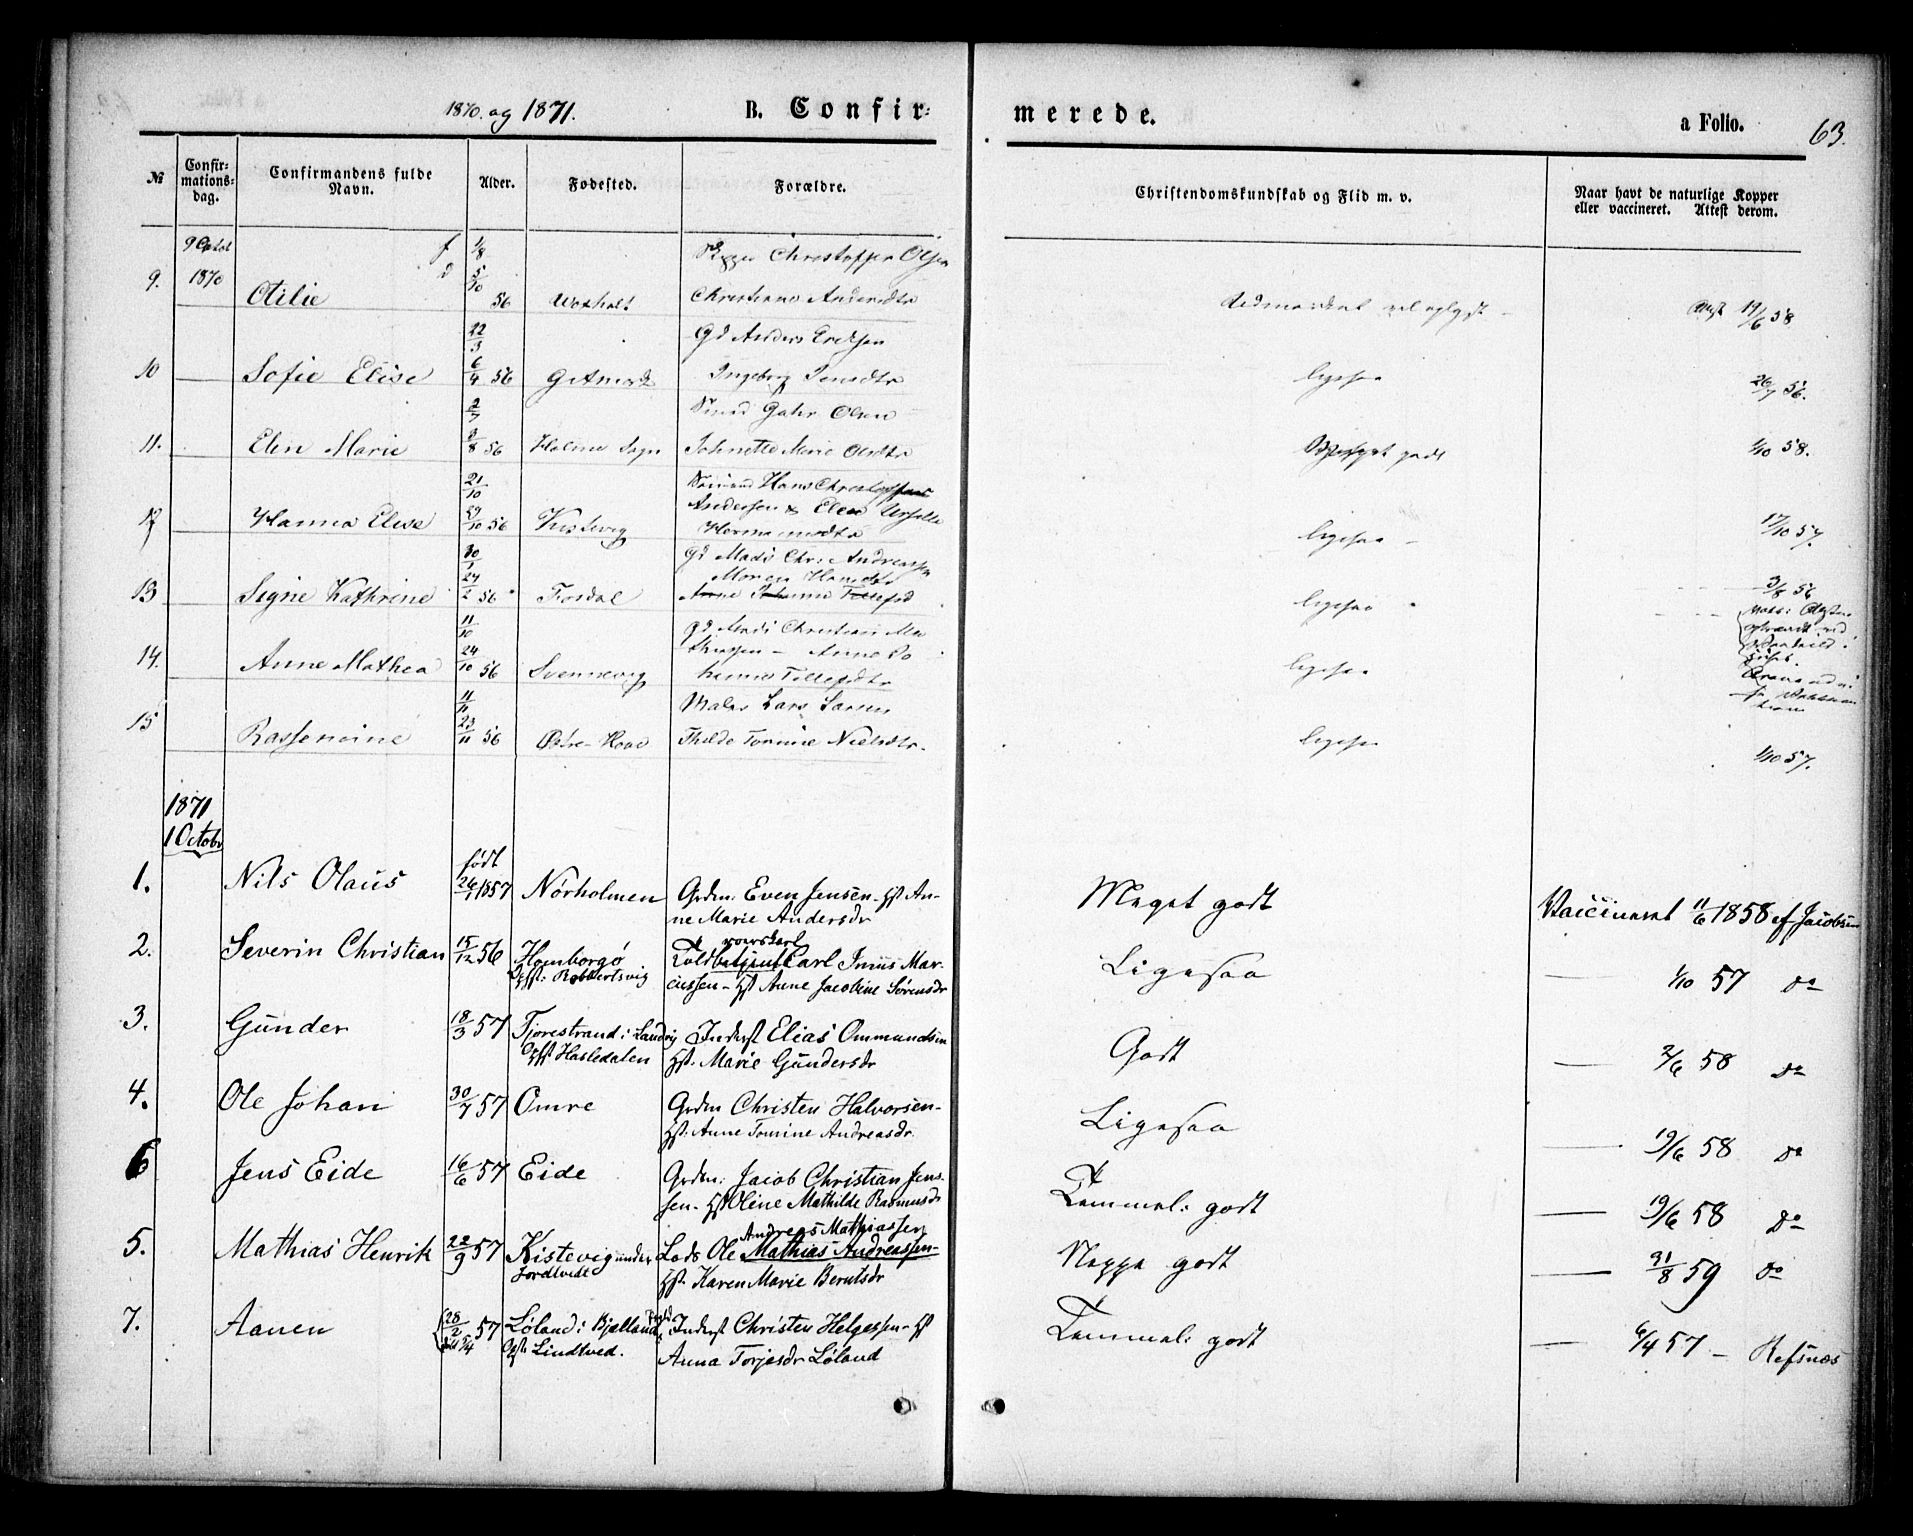 1870. og 1871.
B. Confir-
merede.
a Folio.
63.
№
Confirmations-dag.
Confirmandens fulde Navn.
Alder.
Fødested.
Forældre.
Christendomskundskab og Flid m. v.
Naar havt de naturlige Kopper eller vaccineret. Attest derom.
9 Octob
1870
9. Otilie f 1/8 d 5/10 56
Christoffer Olsen
Christiane Andersdtr
19/6 58
10 Sofie Elise 22/3 6/4 56
Gd Anders Eriksen
Ingeborg Jensdtr
ligesaa
26/7 56.
11. Elen Marie 2/7 3/8 56 Holme Sogn
Olsen
Johnette Marie Olsdtr
godt
1/10 58.
12 Hanna Elise 21/10 29/10 56 Kistevig
Hans Christophers
Andersen & Elen
Hermansdtr
ligesaa
17/10 57.
13 Signe Kathrine 30/1 24/2 56 Fosdal
Gd Mads Chr: Andreassen
Maren Hansdtr
Anne Johanne Tellefsd
ligesaa
3/8 56
14. Anne Mathea 11/10 24/10 56 Svennevig
Gd Mads Christian Ma
thiassen - Anne Jo
hanne Tellefsdtr
ligesaa
15 Rassemine 11/11 23/11 56 Østre-Haae
Maler Lars Larsen
Thilde Tomine Nielsdtr.
ligesaa
1/10 57.
1871
1 Octobr
født
1. Nils Olaus 26/1 1857 Nørholmen Grdm: Even Jensen - Hst An-
ne Marie Andersdr
Meget godt
Vaccineret 11/6 1858 af Jacobsen
2. Severin Christian 15/12 56 Homborgø
Opfst: Robbertsvig
roerskarl
Toldbetjent Carl Inius Mar-
cussen - Hst Anne Jacobine Sørensdr
Ligesaa
1/10 57 do
3. Gunder 18/3 57 Fjorestrand i Landvig
Opfst Hasledalen
Inderst Elias Ommundsen
Hst. Marie Gundersdr
Godt
2/6 58 do
4. Ole Johan 30/7 57 Omre Grdm Christen Halvorsen-
Hst. Anne Tomine Andreasdr.
Ligesaa
19/6 58 do
6 Jens Eide 16/6 57 Eide Grdm: Jacob Christian Jens-
sen - Hst Oline Mathilde Rasmusdr
Temmel: godt
19/6 58 do
Andreas Mathiassen
5. Mathias Henrik 22/9 57 Kistevig under
Lods Ole Mathias Andreassen-
Hst. Karen Marie Berntsdr
Neppe godt
31/8 59 do
7. Aanen 28/2 57 Løland i Bjelland
Opfst Lindtved.
Inderst Christen Helgessen - Hst
Anna Torjesdr Løland
Temmel: godt
6/4 57 - Refsnæs